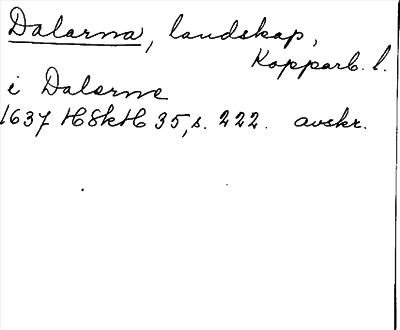 Dalarna, landskap,
Kopparb. l.
i Dalerne
1637 HSkH 35, s. 222. avskr.